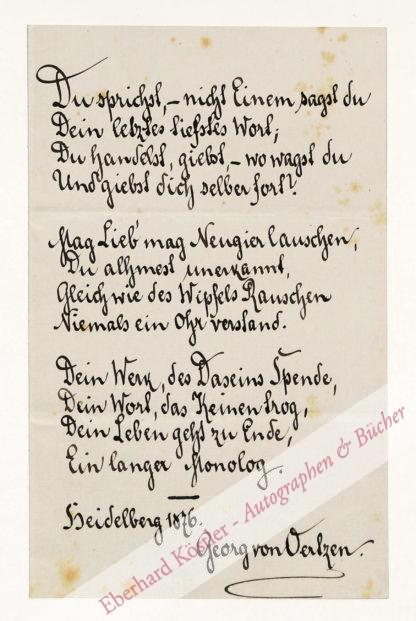 Du sprichst, – nicht Einem sagst du
Dein letztes tiefstes Wort;
Du handelst, giebst, – wo wagst du
Und giebst dich selber fort?
Mag Lieb' mag Neugier lauschen,
Du athmest unerkannt,
Gleich wie des Wipfels Rauschen
Niemals ein Ohr verstand.
Dein Werk, des Daseins Spende,
Dein Wort, das Keinen trog,
Dein Leben geht zu Ende,
Ein langer Monolog.
Heidelberg 1876.
Georg von Oertzen.
Eberhard Köstler - Autographen & Bücher